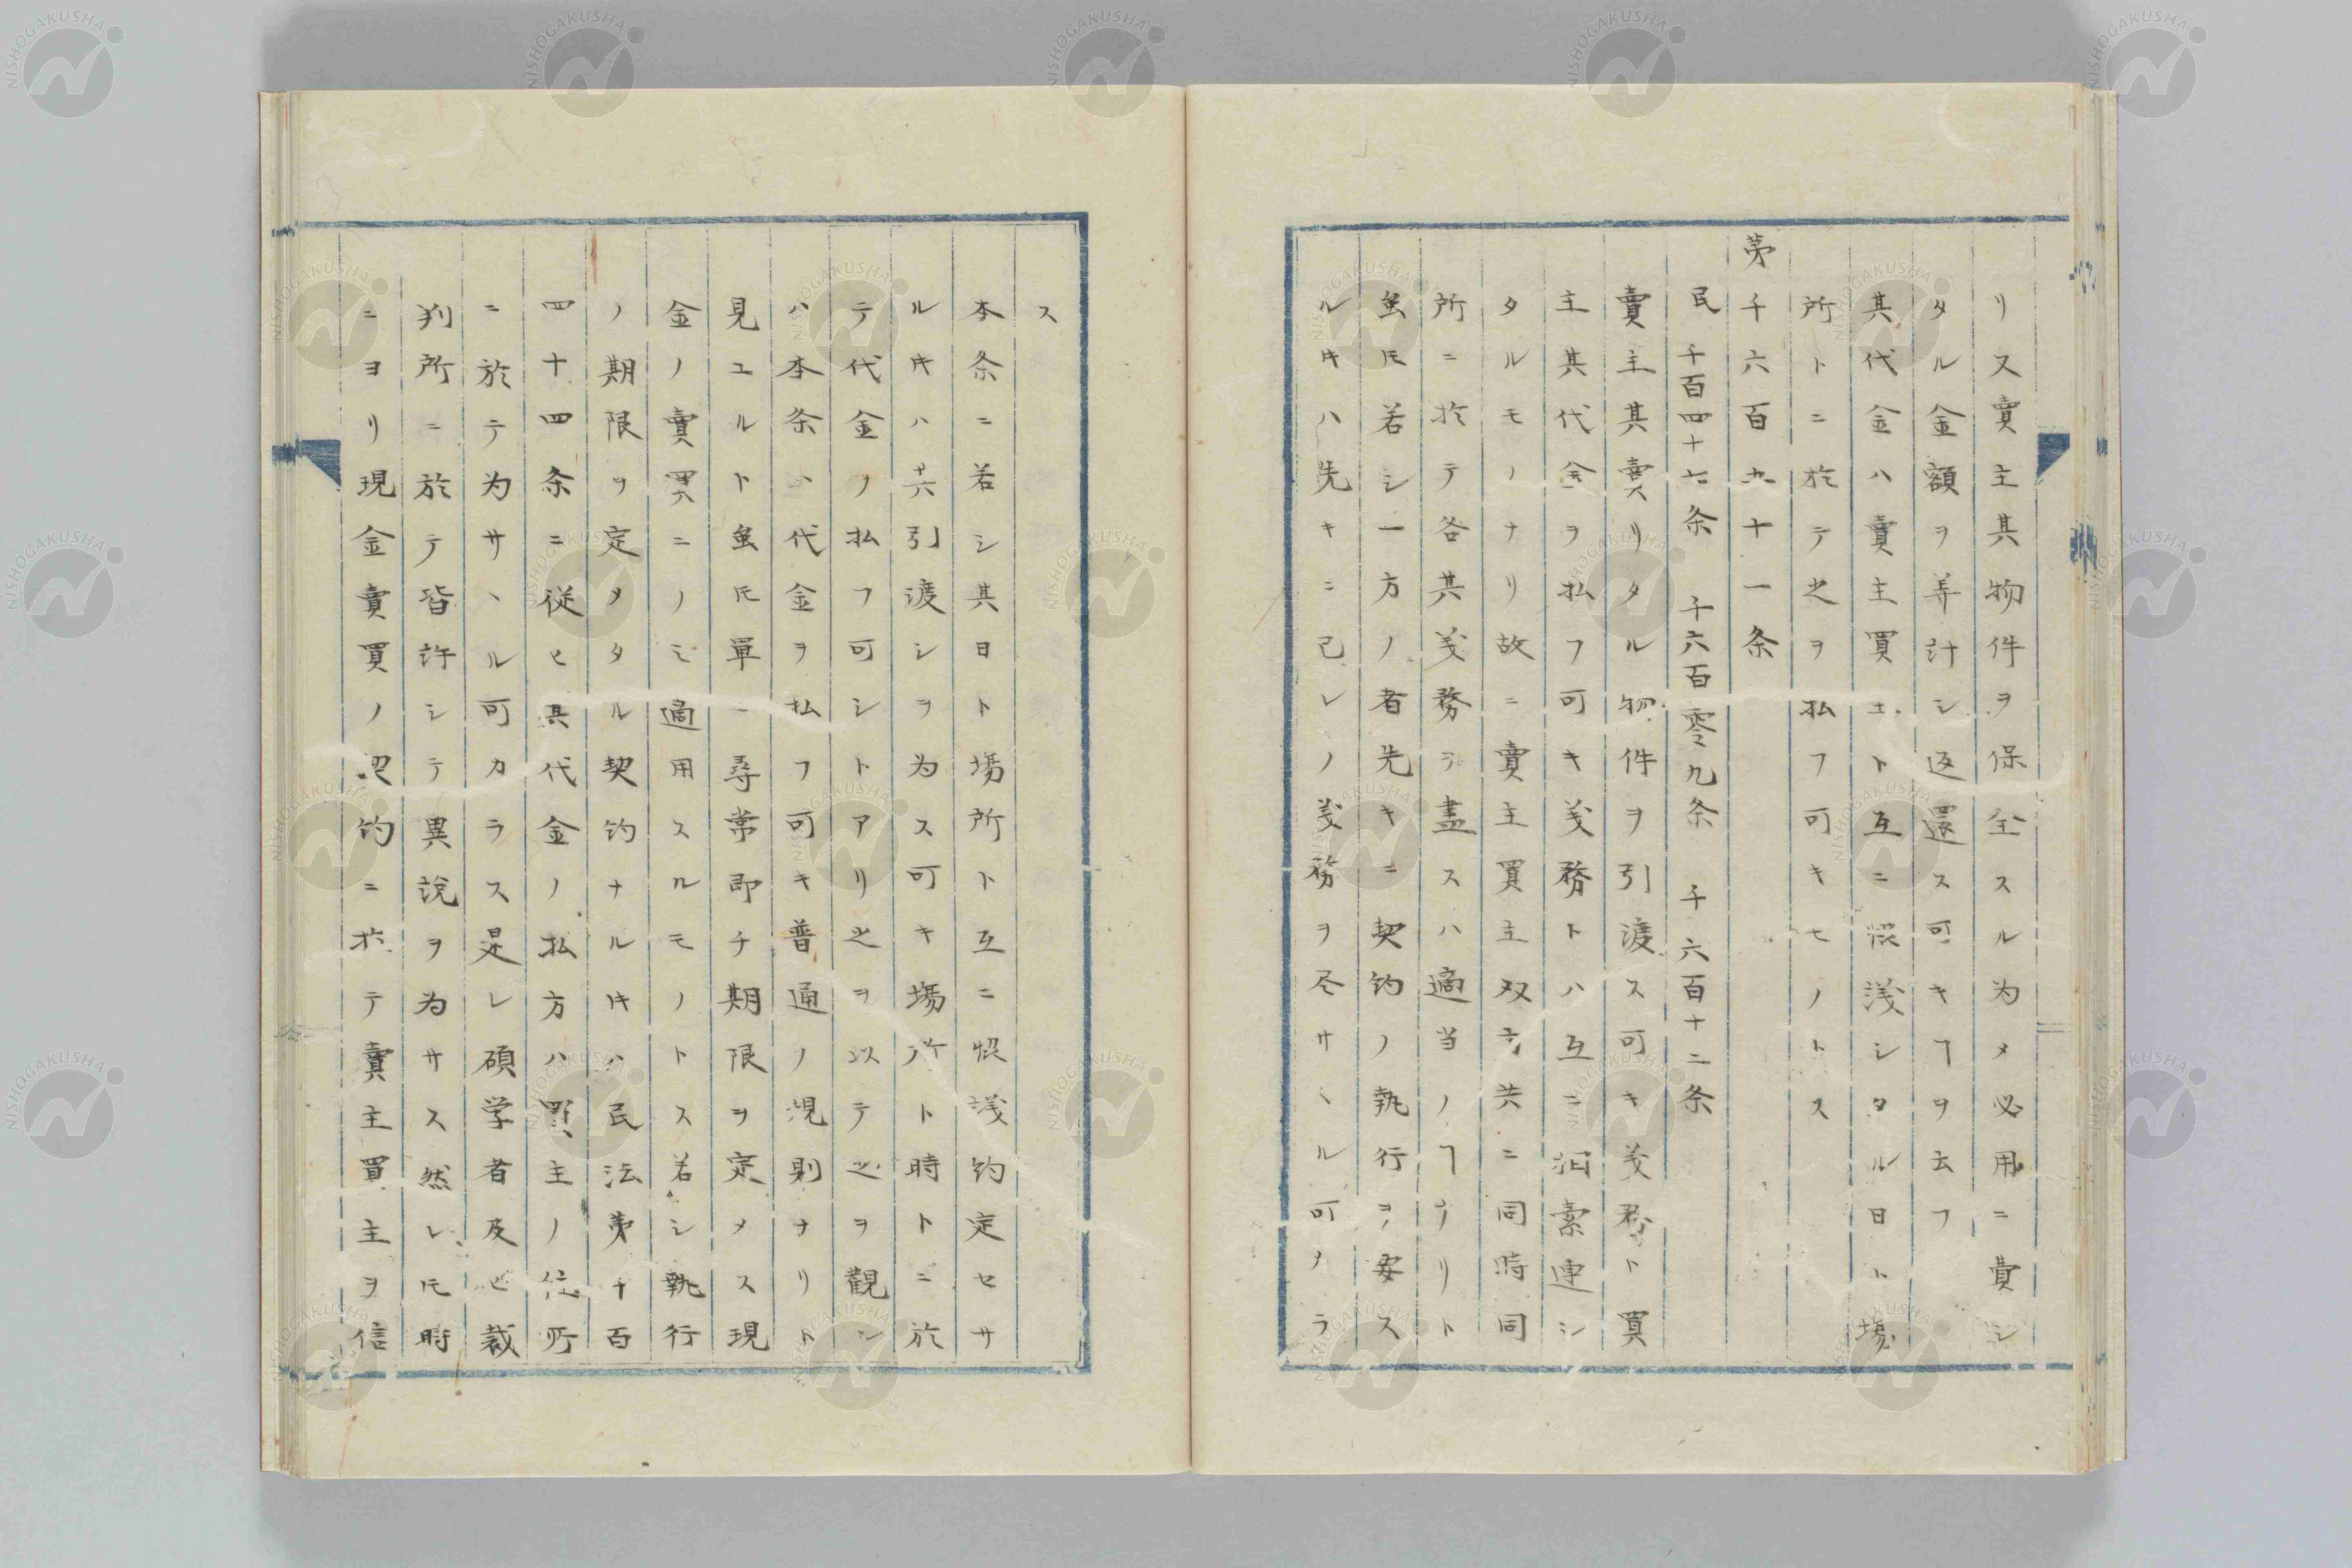 リス賣主其物件ヲ保全スル為メ必用ニ費シ
タル金額ヲ算計シ返還ス可キヿヲ云フ
其代金ハ賣主買主ト互ニ協議シタル日ト場
所トニ於テ之ヲ払フ可キモノトス
苐千六百九十一条
民千百四十七条 千六百零九条 千六百十二条
賣主其賣リタル物件ヲ引渡ス可キ义務ト買
主其代金ヲ払フ可キ义務トハ互ニ相索連シ
タルモノナリ故ニ賣主買主双方共ニ同時同
所ニ於テ各其义務ヲ盡スハ適当ノヿナリト
虽𪜈若シ一方ノ者先キニ契約ノ執行ヲ要ス
ルキハ先キニ己レノ义務ヲ尽サヽル可カラ
ス
本条ニ若シ其日ト場所ト互ニ協議約定セサ
ルキハ其引渡シヲ為ス可キ場所ト時トニ於
テ代金ヲ払フ可シトアリ之ヲ以テ之ヲ觀レ
ハ本条ハ代金ヲ払フ可キ普通ノ規則ナリト
見ユルト虽𪜈單ニ尋常即チ期限ヲ定メス現
金ノ賣買ニノミ適用スルモノトス若シ執行
ノ期限ヲ定メタル契約ナルキハ民法苐千百
四十四条ニ従ヒ其代金ノ払方ハ買主ノ住所
ニ於テ為サヽル可カラス是レ碩学者及ヒ裁
判所ニ於テ皆許シテ異說ヲ為サス然レ𪜈時
ニヨリ現金賣買ノ契約ニ於テ賣主買主ヲ信
NISHOGAKUSHA